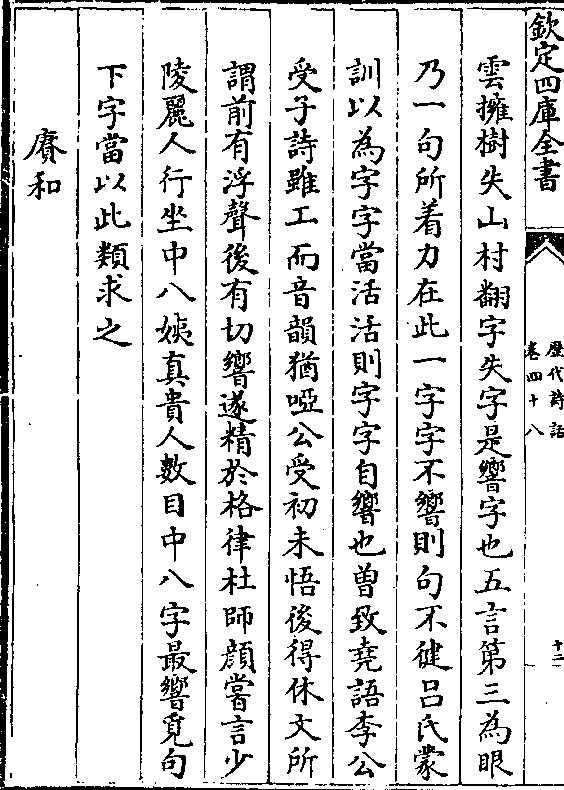 欽定四庫全書
歷代詩話
卷四十八
十二
雲擁樹失山村翻字失字是響字也五言第三為眼
乃一句所着力在此一字字不響則句不健吕氏蒙
訓以為字字當活活則字字自響也曽致堯語李公
受子詩雖工而音韻猶啞公受初未悟後得休文所
謂前有浮聲後有切響遂精於格律杜師顔嘗言少
陵麗人行坐中八姨真貴人數目中八字最響覓句
下字當以此類求之
賡和